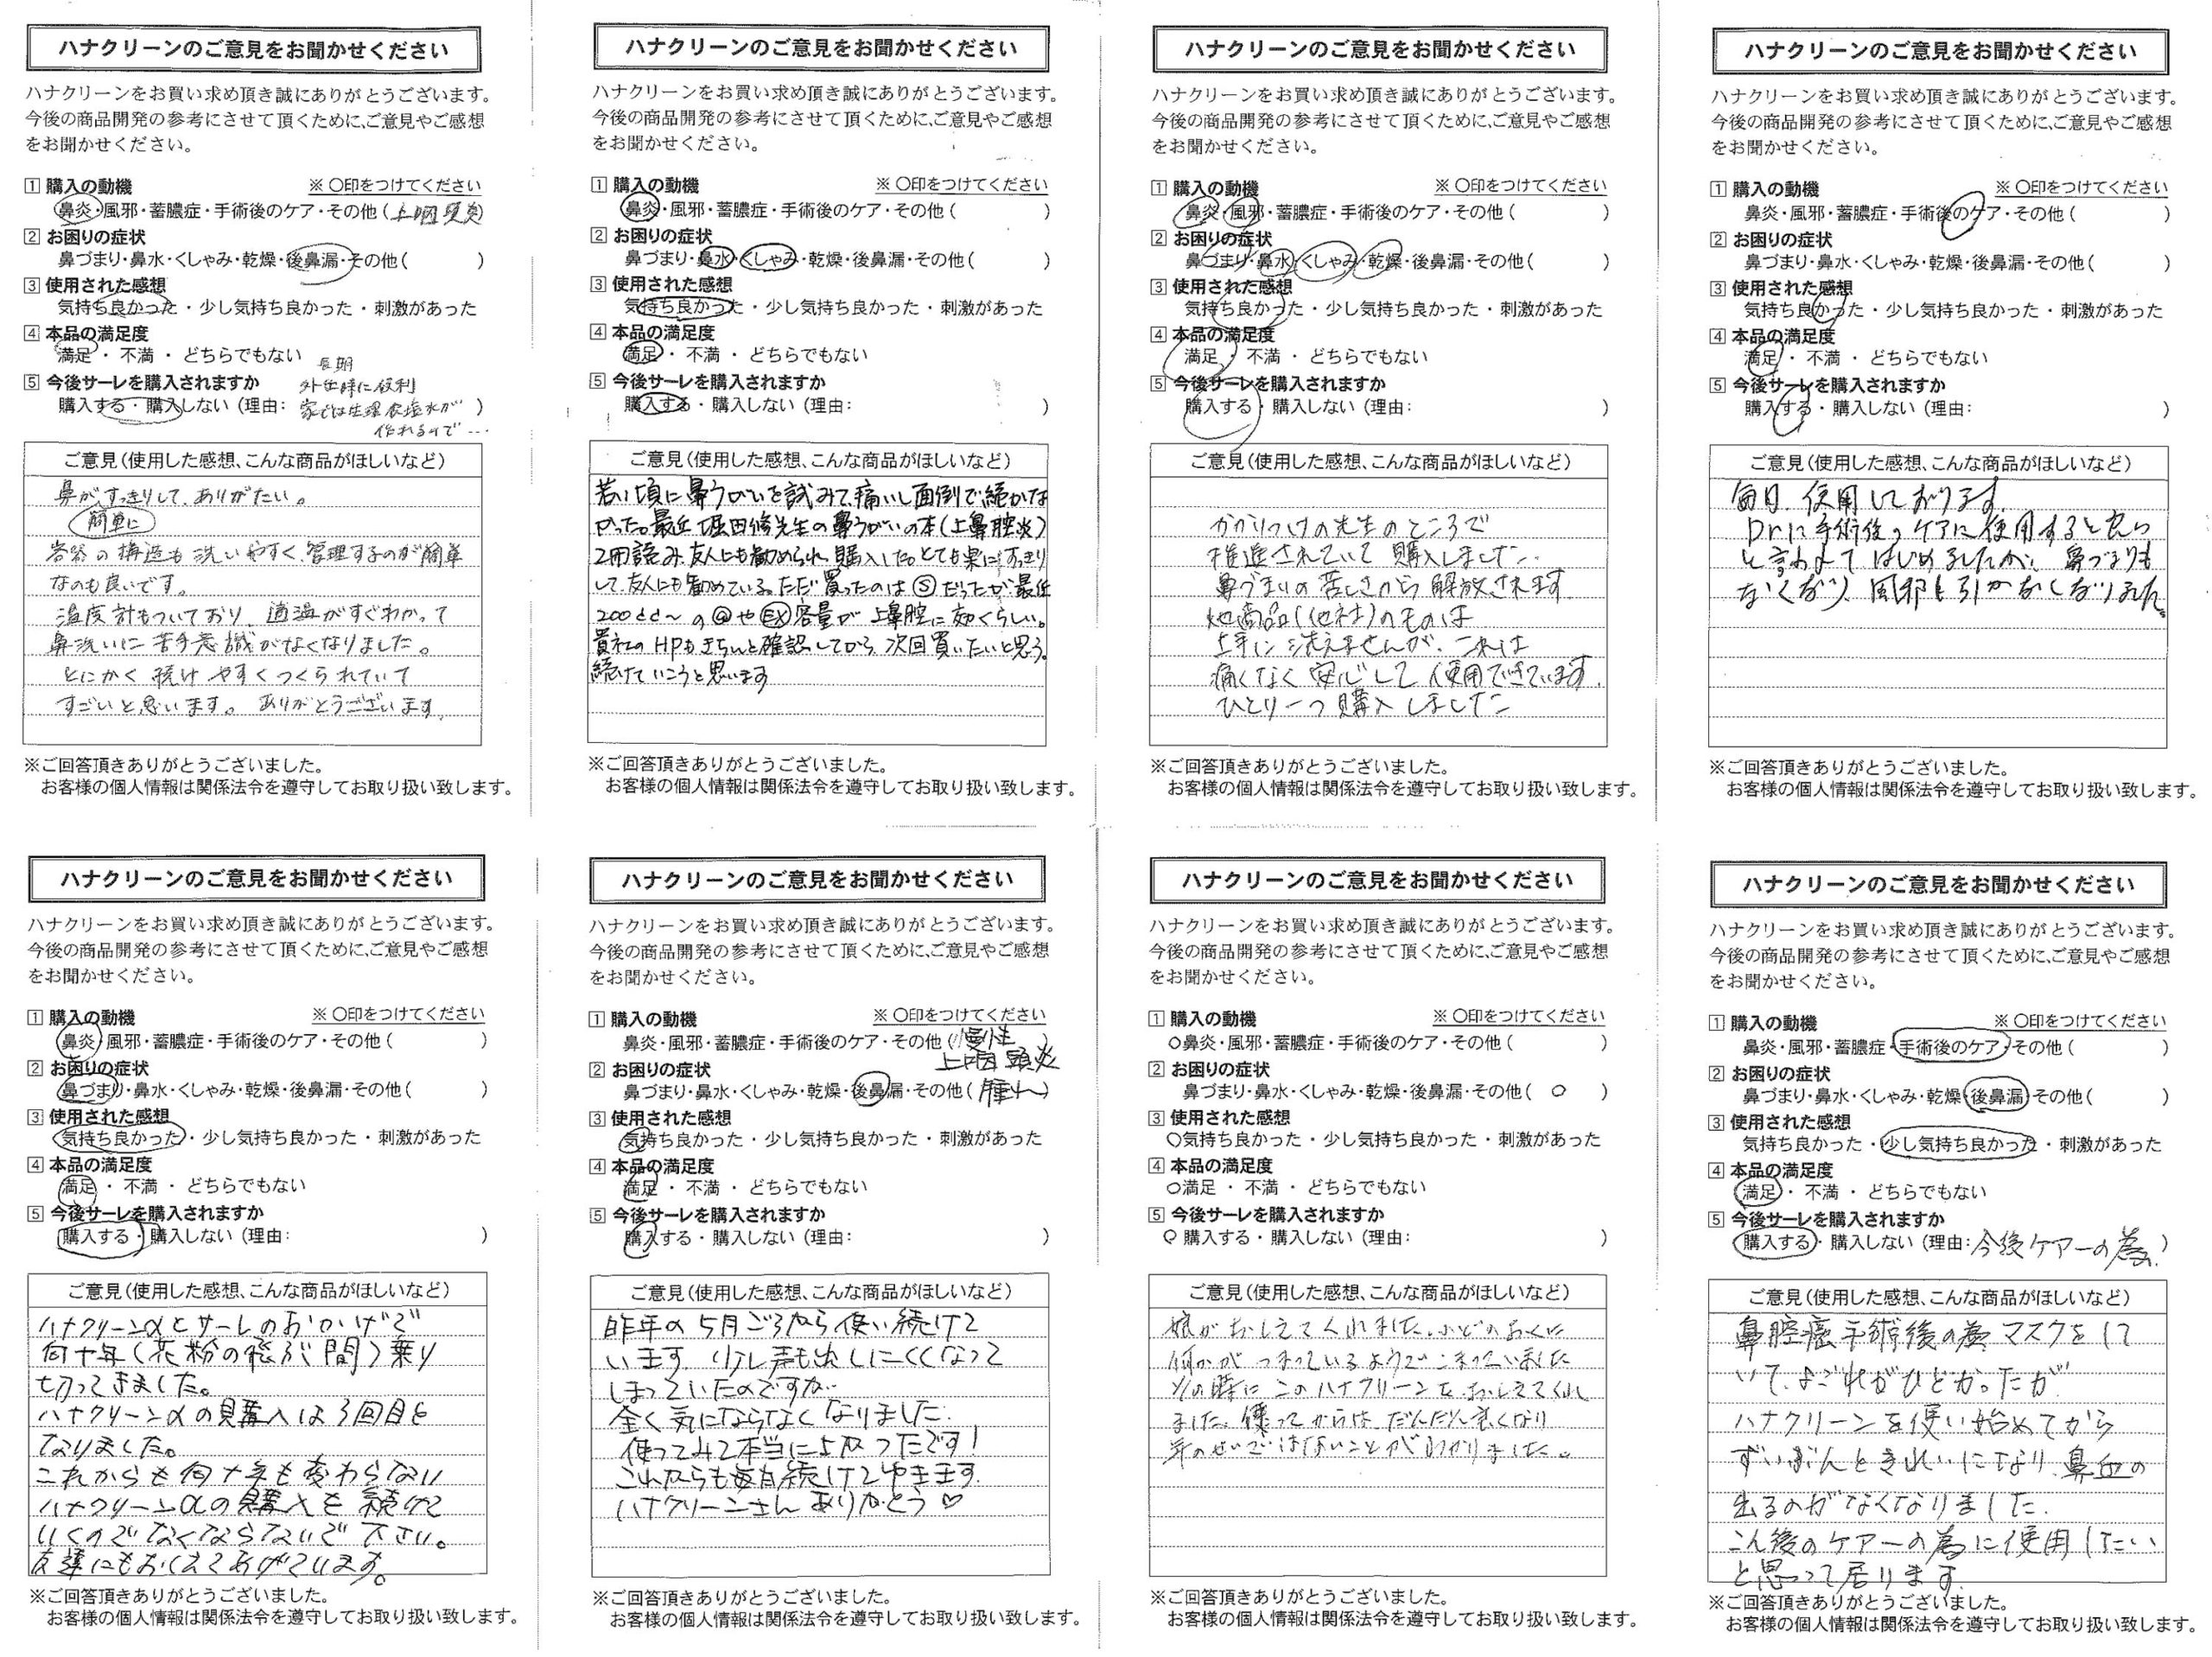 ハナクリーンのご意見をお聞かせください
ハナクリーンをお買い求め頂き誠にありがとうございます。
今後の商品開発の参考にさせて頂くために、ご意見やご感想
をお聞かせください。
1 購入の動機 ※ ○印をつけてください
鼻炎・風邪・蓄膿症・手術後のケア・その他(上咽頭炎)
2 お困りの症状
鼻づまり・鼻水・くしゃみ・乾燥・後鼻漏・その他( )
3 使用された感想
気持ち良かった ・ 少し気持ち良かった ・ 刺激があった
4 本品の満足度
満足 ・ 不満 ・ どちらでもない
5 今後サーレを購入されますか
購入する ・ 購入しない (理由: 長期
外出時に便利
家では生理食塩水が )
作れるので…
ご意見(使用した感想、こんな商品がほしいなど)
鼻がすっきりして、ありがたい。
簡単に
容器の構造も洗いやすく、管理するのが簡単
なのも良いです。
温度計もついており、適温がすぐわかって
鼻洗いに苦手意識がなくなりました。
とにかく続けやすくつくられていて
すごいと思います。ありがとうございます。
※ご回答頂きありがとうございました。
お客様の個人情報は関係法令を遵守してお取り扱い致します。
ハナクリーンのご意見をお聞かせください
ハナクリーンをお買い求め頂き誠にありがとうございます。
今後の商品開発の参考にさせて頂くために、ご意見やご感想
をお聞かせください。
1 購入の動機 ※ ○印をつけてください
鼻炎・風邪・蓄膿症・手術後のケア・その他( )
2 お困りの症状
鼻づまり・鼻水・くしゃみ・乾燥・後鼻漏・その他( )
3 使用された感想
気持ち良かった ・ 少し気持ち良かった ・ 刺激があった
4 本品の満足度
満足 ・ 不満 ・ どちらでもない
5 今後サーレを購入されますか
購入する ・ 購入しない (理由: )
ご意見(使用した感想、こんな商品がほしいなど)
若い頃に鼻うがいを試みて、痛いし面倒で続かな
かった。最近堀田修先生の鼻うがいの本(上鼻腔炎)
2冊読み、友人にも勧められ、購入した。とても楽に、すっきり
して、友人にも勧めている。ただ買ったのはⓈだったが、最近
200cc~のⓐやEX容量が上鼻腔に効くらしい。
貴社のHPもきちんと確認してから、次回買いたいと思う。
続けていこうと思います
※ご回答頂きありがとうございました。
お客様の個人情報は関係法令を遵守してお取り扱い致します。
ハナクリーンのご意見をお聞かせください
ハナクリーンをお買い求め頂き誠にありがとうございます。
今後の商品開発の参考にさせて頂くために、ご意見やご感想
をお聞かせください。
1 購入の動機 ※ ○印をつけてください
鼻炎・風邪・蓄膿症・手術後のケア・その他( )
2 お困りの症状
鼻づまり・鼻水・くしゃみ・乾燥・後鼻漏・その他( )
3 使用された感想
気持ち良かった ・ 少し気持ち良かった ・ 刺激があった
4 本品の満足度
満足 ・ 不満 ・ どちらでもない
5 今後サーレを購入されますか
購入する ・ 購入しない (理由: )
ご意見(使用した感想、こんな商品がほしいなど)
かかりつけの先生のところで
推進されていて購入しました。
鼻づまりの苦しさから解放されます
他商品(他社)のものは
上手に洗えませんが、これは
痛くなく安心して使用できています。
ひとり一つ購入しました
※ご回答頂きありがとうございました。
お客様の個人情報は関係法令を遵守してお取り扱い致します。
ハナクリーンのご意見をお聞かせください
ハナクリーンをお買い求め頂き誠にありがとうございます。
今後の商品開発の参考にさせて頂くために、ご意見やご感想
をお聞かせください。
1 購入の動機 ※ ○印をつけてください
鼻炎・風邪・蓄膿症・手術後のケア・その他( )
2 お困りの症状
鼻づまり・鼻水・くしゃみ・乾燥・後鼻漏・その他( )
3 使用された感想
気持ち良かった ・ 少し気持ち良かった ・ 刺激があった
4 本品の満足度
満足 ・ 不満 ・ どちらでもない
5 今後サーレを購入されますか
購入する ・ 購入しない (理由: )
ご意見(使用した感想、こんな商品がほしいなど)
毎日、使用しております。
Drに手術後のケアに使用すると良い
と言われてはじめましたが、鼻づまりも
なくなり、風邪も引かなくなりました。
※ご回答頂きありがとうございました。
お客様の個人情報は関係法令を遵守してお取り扱い致します。
ハナクリーンのご意見をお聞かせください
ハナクリーンをお買い求め頂き誠にありがとうございます。
今後の商品開発の参考にさせて頂くために、ご意見やご感想
をお聞かせください。
1 購入の動機 ※ ○印をつけてください
鼻炎・風邪・蓄膿症・手術後のケア・その他( )
2 お困りの症状
鼻づまり・鼻水・くしゃみ・乾燥・後鼻漏・その他( )
3 使用された感想
気持ち良かった ・ 少し気持ち良かった ・ 刺激があった
4 本品の満足度
満足 ・ 不満 ・ どちらでもない
5 今後サーレを購入されますか
購入する ・ 購入しない (理由: )
ご意見(使用した感想、こんな商品がほしいなど)
ハナクリーンαとサーレのおかげで
何十年(花粉の飛ぶ間)乗り
切ってきました。
ハナクリーンαの購入は3回目と
なりました。
これからも何十年も変わらない
ハナクリーンαの購入を続けて
いくのでなくならないで下さい。
友達にもおしえてあげています。
※ご回答頂きありがとうございました。
お客様の個人情報は関係法令を遵守してお取り扱い致します。
ハナクリーンのご意見をお聞かせください
ハナクリーンをお買い求め頂き誠にありがとうございます。
今後の商品開発の参考にさせて頂くために、ご意見やご感想
をお聞かせください。
1 購入の動機 ※ ○印をつけてください
鼻炎・風邪・蓄膿症・手術後のケア・その他(慢性 )
上咽頭炎
2 お困りの症状
鼻づまり・鼻水・くしゃみ・乾燥・後鼻漏・その他(腫れ)
3 使用された感想
気持ち良かった ・ 少し気持ち良かった ・ 刺激があった
4 本品の満足度
満足 ・ 不満 ・ どちらでもない
5 今後サーレを購入されますか
購入する ・ 購入しない (理由: )
ご意見(使用した感想、こんな商品がほしいなど)
昨年の5月ごろから使い続けて
います。少し声も出しにくくなって
しまっていたのですが…
全く気にならなくなりました。
使ってみて本当によかったです!
これからも毎日続けてゆきます。
ハナクリーンさんありがとう♡
※ご回答頂きありがとうございました。
お客様の個人情報は関係法令を遵守してお取り扱い致します。
ハナクリーンのご意見をお聞かせください
ハナクリーンをお買い求め頂き誠にありがとうございます。
今後の商品開発の参考にさせて頂くために、ご意見やご感想
をお聞かせください。
1 購入の動機 ※ ○印をつけてください
○鼻炎・風邪・蓄膿症・手術後のケア・その他( )
2 お困りの症状
鼻づまり・鼻水・くしゃみ・乾燥・後鼻漏・その他( ○ )
3 使用された感想
○気持ち良かった ・ 少し気持ち良かった ・ 刺激があった
4 本品の満足度
○満足 ・ 不満 ・ どちらでもない
5 今後サーレを購入されますか
○購入する ・ 購入しない (理由: )
ご意見(使用した感想、こんな商品がほしいなど)
娘がおしえてくれました。のどのおくに
何かがつまっているようでこまっていました
その時にこのハナクリーンをおしえてくれ
ました。使ってからはだんだん良くなり
年のせいではないことがわかりました。
※ご回答頂きありがとうございました。
お客様の個人情報は関係法令を遵守してお取り扱い致します。
ハナクリーンのご意見をお聞かせください
ハナクリーンをお買い求め頂き誠にありがとうございます。
今後の商品開発の参考にさせて頂くために、ご意見やご感想
をお聞かせください。
1 購入の動機 ※ ○印をつけてください
鼻炎・風邪・蓄膿症・手術後のケア・その他( )
2 お困りの症状
鼻づまり・鼻水・くしゃみ・乾燥・後鼻漏・その他( )
3 使用された感想
気持ち良かった ・ 少し気持ち良かった ・ 刺激があった
4 本品の満足度
満足 ・ 不満 ・ どちらでもない
5 今後サーレを購入されますか
購入する ・ 購入しない (理由:今後ケアーの為)
ご意見(使用した感想、こんな商品がほしいなど)
鼻腔癌手術後の為マスクをして
いて、よごれがひどかったが
ハナクリーンを使い始めてから
ずいぶんときれいになり、鼻血の
出るのがなくなりました。
こん後のケアーの為に使用したい
と思って居ります。
※ご回答頂きありがとうございました。
お客様の個人情報は関係法令を遵守してお取り扱い致します。